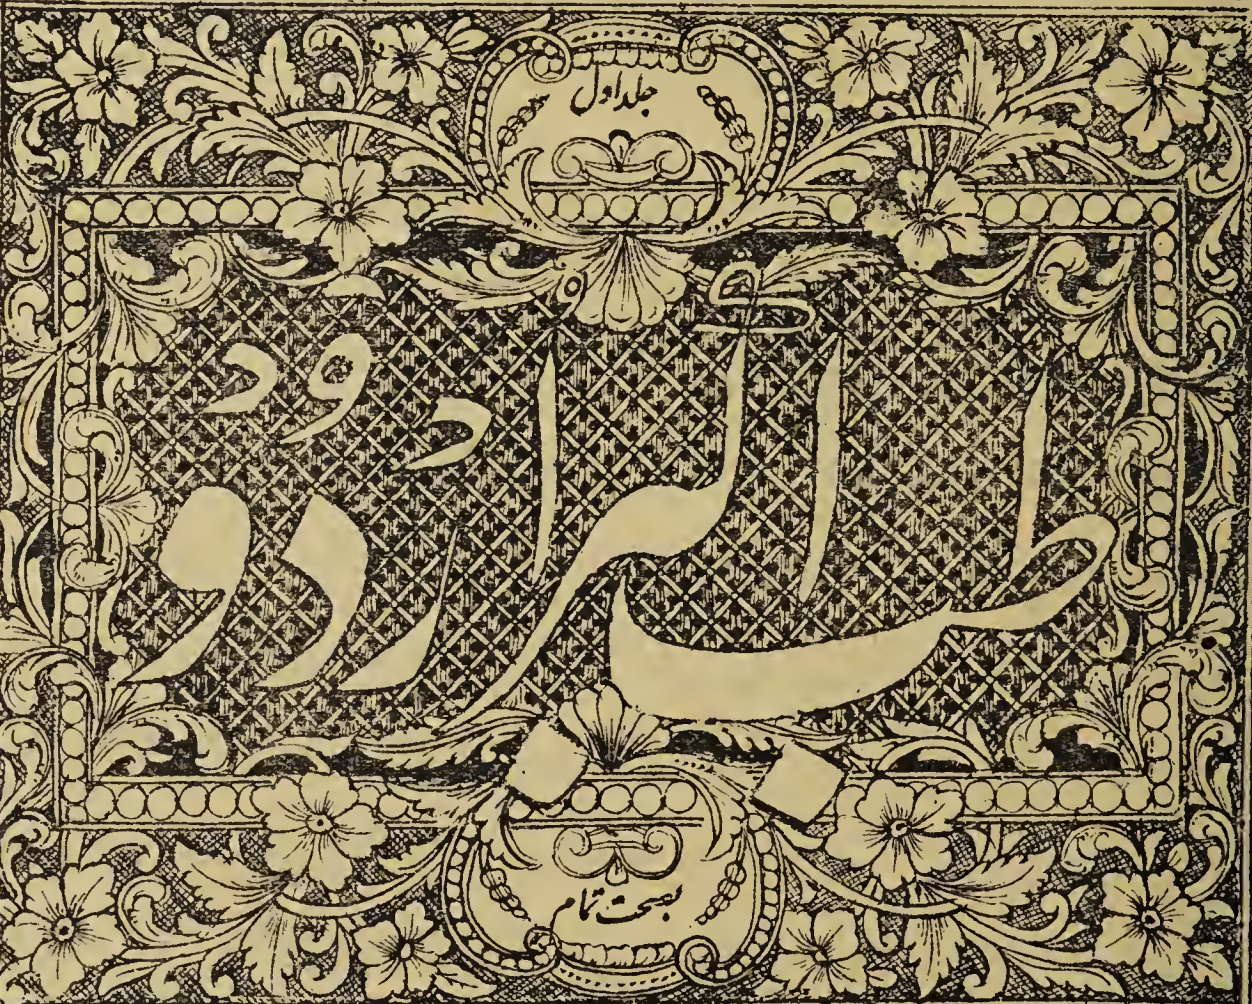 جلد اول
طب اکبر اردو
بصحت تمام